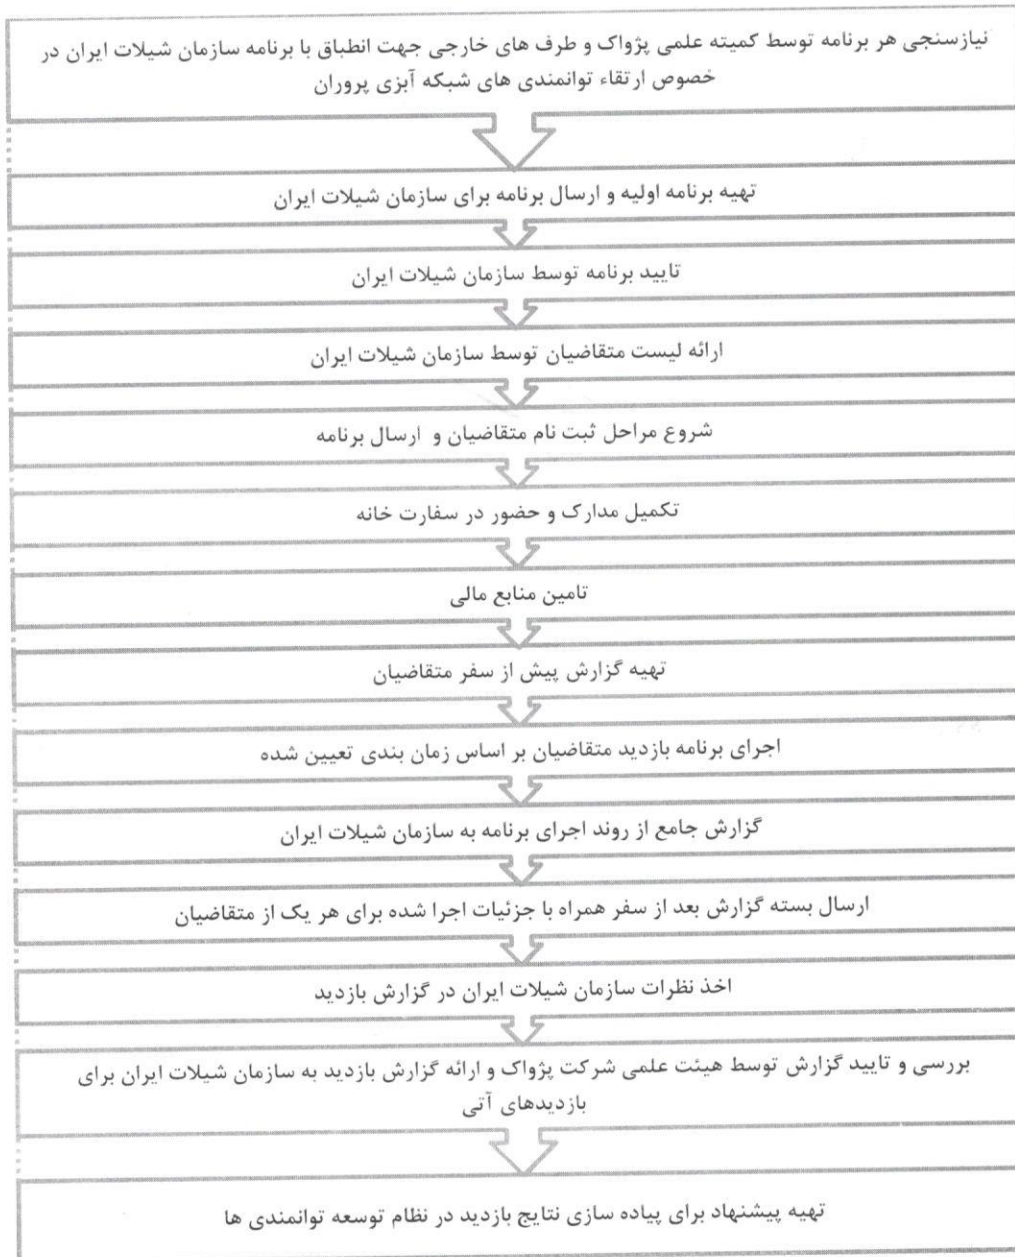 نیازسنجی هر برنامه توسط کمیته علمی پژواک و طرف های خارجی جهت انطباق با برنامه سازمان شیلات ایران در
خصوص ارتقاء توانمندی های شبکه آبزی پروران
تهیه برنامه اولیه و ارسال برنامه برای سازمان شیلات ایران
تایید برنامه توسط سازمان شیلات ایران
ارائه لیست متقاضیان توسط سازمان شیلات ایران
شروع مراحل ثبت نام متقاضیان و ارسال برنامه
تکمیل مدارک و حضور در سفارت خانه
تامین منابع مالی
تهیه گزارش پیش از سفر متقاضیان
اجرای برنامه بازدید متقاضیان بر اساس زمان بندی تعیین شده
گزارش جامع از روند اجرای برنامه به سازمان شیلات ایران
ارسال بسته گزارش بعد از سفر همراه با جزئیات اجرا شده برای هر یک از متقاضیان
اخذ نظرات سازمان شیلات ایران در گزارش بازدید
بررسی و تایید گزارش توسط هیئت علمی شرکت پژواک و ارائه گزارش بازدید به سازمان شیلات ایران برای
بازدیدهای آتی
تهیه پیشنهاد برای پیاده سازی نتایج بازدید در نظام توسعه توانمندی ها